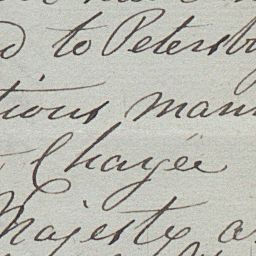 d to Petersb
tious mann
Chargée
Majesty a